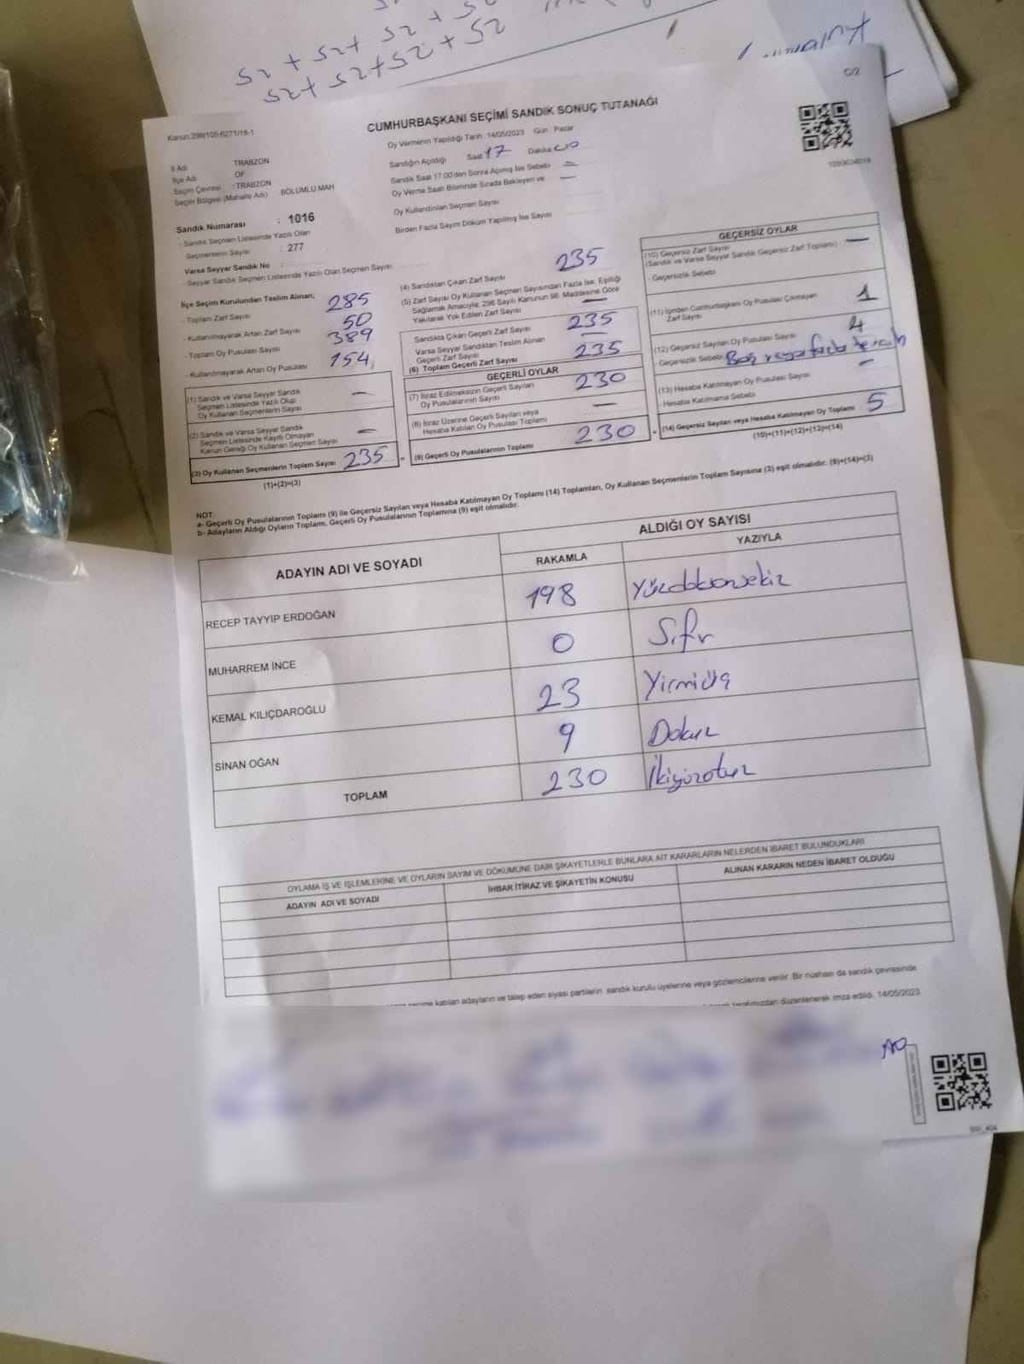 52 + 52 + 52 + 52
52 + 52 + 52 + 52
Kanun:298/105-6271/16-1
CUMHURBAŞKANI SEÇİMİ SANDIK SONUÇ TUTANAĞI
C/2
İl Adı TRABZON
İlçe Adı OF
Seçim Çevresi : TRABZON
Seçim Bölgesi (Mahalle Adı) BÖLÜMLÜ MAH
Sandık Numarası : 1016
- Sandık Seçmen Listesinde Yazılı Olan
Seçmenlerin Sayısı : 277
Varsa Seyyar Sandık No
- Seyyar Sandık Seçmen Listesinde Yazılı Olan Seçmen Sayısı
Oy Vermenin Yapıldığı Tarih : 14/05/2023 Gün : Pazar
Sandığın Açıldığı Saat 17 Dakika 00
Sandık Saat 17:00'den Sonra Açılmış İse Sebebi
Oy Verme Saati Bitiminde Sırada Bekleyen ve
Oy Kullandırılan Seçmen Sayısı
Birden Fazla Sayım Döküm Yapılmış İse Sayısı
İlçe Seçim Kurulundan Teslim Alınan;
- Toplam Zarf Sayısı 285
- Kullanılmayarak Artan Zarf Sayısı 50
- Toplam Oy Pusulası Sayısı 389
- Kullanılmayarak Artan Oy Pusulası 154
(1) Sandık ve Varsa Seyyar Sandık
Seçmen Listesinde Yazılı Olup
Oy Kullanan Seçmenlerin Sayısı —
(2) Sandık ve Varsa Seyyar Sandık
Seçmen Listesinde Kayıtlı Olmayan
Kanun Gereği Oy Kullanan Seçmen Sayısı —
(3) Oy Kullanan Seçmenlerin Toplam Sayısı 235
(1)+(2)=(3)
(4) Sandıktan Çıkan Zarf Sayısı 235
(5) Zarf Sayısı Oy Kullanan Seçmen Sayısından Fazla İse, Eşitliği
Sağlamak Amacıyla; 298 Sayılı Kanunun 98. Maddesine Göre
Yakılarak Yok Edilen Zarf Sayısı —
Sandıkta Çıkan Geçerli Zarf Sayısı 235
Varsa Seyyar Sandıktan Teslim Alınan
Geçerli Zarf Sayısı —
(6) Toplam Geçerli Zarf Sayısı 235
GEÇERLİ OYLAR
(7) İtiraz Edilmeksizin Geçerli Sayılan
Oy Pusulalarının Sayısı 230
(8) İtiraz Üzerine Geçerli Sayılan veya
Hesaba Katılan Oy Pusulası Toplamı —
(9) Geçerli Oy Pusulalarının Toplamı 230
GEÇERSİZ OYLAR
(10) Geçersiz Zarf Sayısı
(Sandık ve Varsa Seyyar Sandık Geçersiz Zarf Toplamı) —
- Geçersizlik Sebebi
(11) İçinden Cumhurbaşkanı Oy Pusulası Çıkmayan
Zarf Sayısı 1
(12) Geçersiz Sayılan Oy Pusulası Sayısı 4
- Geçersizlik Sebebi Boş veya fazla tercih
(13) Hesaba Katılmayan Oy Pusulası Sayısı —
- Hesaba Katılmama Sebebi
(14) Geçersiz Sayılan veya Hesaba Katılmayan Oy Toplamı 5
(10)+(11)+(12)+(13)=(14)
NOT:
a- Geçerli Oy Pusulalarının Toplamı (9) ile Geçersiz Sayılan veya Hesaba Katılmayan Oy Toplamı (14) Toplamları, Oy Kullanan Seçmenlerin Toplam Sayısına (3) eşit olmalıdır. (9)+(14)=(3)
b- Adayların Aldığı Oyların Toplamı, Geçerli Oy Pusulalarının Toplamına (9) eşit olmalıdır.
ADAYIN ADI VE SOYADI
ALDIĞI OY SAYISI
RAKAMLA YAZIYLA
RECEP TAYYIP ERDOĞAN 198 Yüzdoksansekiz
MUHARREM İNCE 0 Sıfır
KEMAL KILIÇDAROĞLU 23 Yirmiüç
SİNAN OĞAN 9 Dokuz
TOPLAM 230 İkiyüzotuz
OYLAMA İŞ VE İŞLEMLERİNE VE OYLARIN SAYIM VE DÖKÜMÜNE DAİR ŞİKAYETLERLE BUNLARA AİT KARARLARIN NELERDEN İBARET BULUNDUKLARI
ADAYIN ADI VE SOYADI
İHBAR İTİRAZ VE ŞİKAYETİN KONUSU
ALINAN KARARIN NEDEN İBARET OLDUĞU
katılan adayların ve talep eden siyasi partilerin sandık kurulu üyelerine veya gözlemcilerine verilir. Bir nüshası da sandık çevresinde
tarafımızdan düzenlenerek imza edildi. 14/05/2023